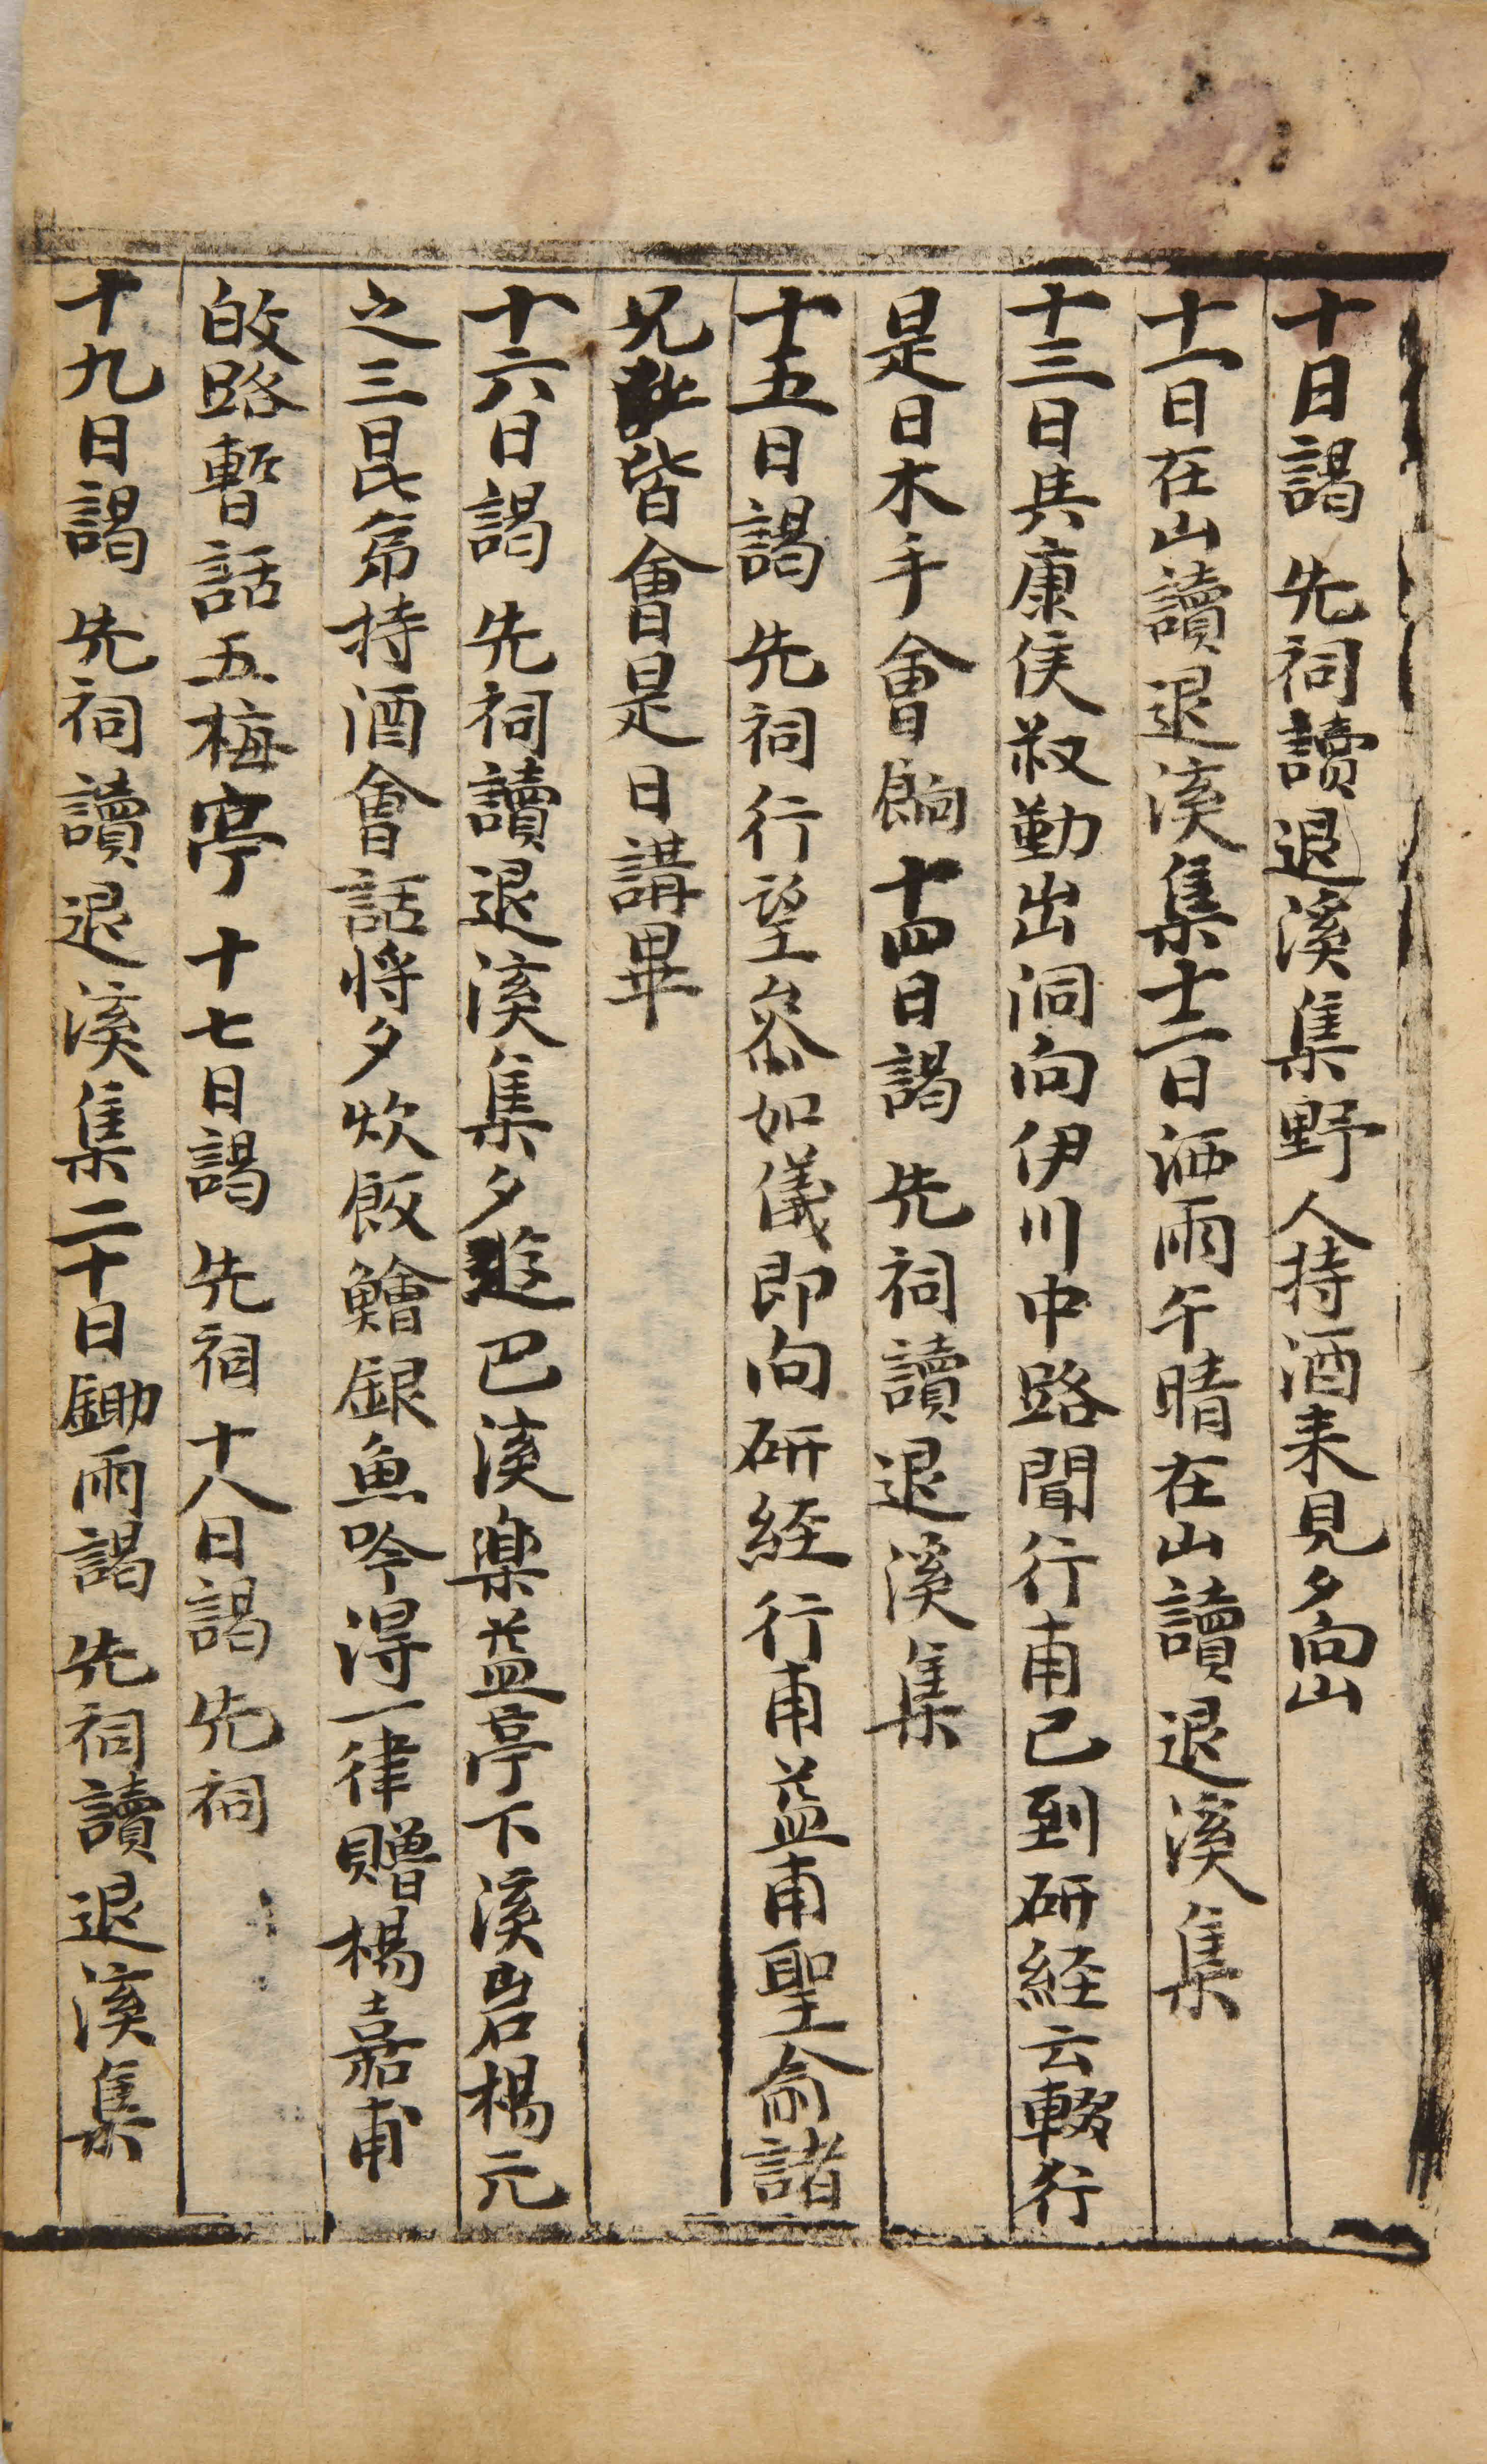 十日謁 先祠讀退溪集野人持酒来見夕向山
十一日在山讀退溪集十二日洒雨午晴在山讀退溪集
十三日共康侯叔勤出洞向伊川中路聞行甫已到研経云輟行
是日木手會餉十四日謁 先祠讀退溪集
十五日謁 先祠行望叅如儀即向研経行甫益甫聖俞諸
兄皆會是日講畢
十六日謁 先祠讀退溪集夕遊巴溪樂益亭下溪岩楊元
之三昆弟持酒會話将夕炊飯鱠銀魚吟得一律贈楊嘉甫
皈路暫話五梅亭十七日謁 先祠十八日謁 先祠
十九日謁 先祠讀退溪集二十日鋤雨謁 先祠讀退溪集